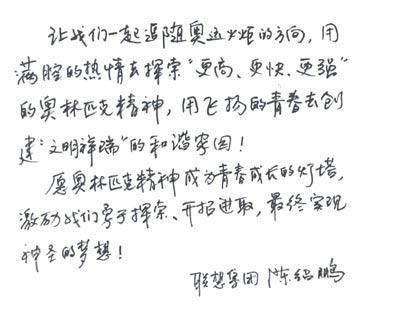 让我们一起追随奥运火炬的方向，用
满腔的热情去探索“更高、更快、更强”
的奥林匹克精神，用飞扬的青春去创
建“文明祥瑞”的和谐家园！
愿奥林匹克精神成为青春成长的灯塔，
激励我们勇于探索、开拓进取，最终实现
神圣的梦想！
联想集团 陈绍鹏